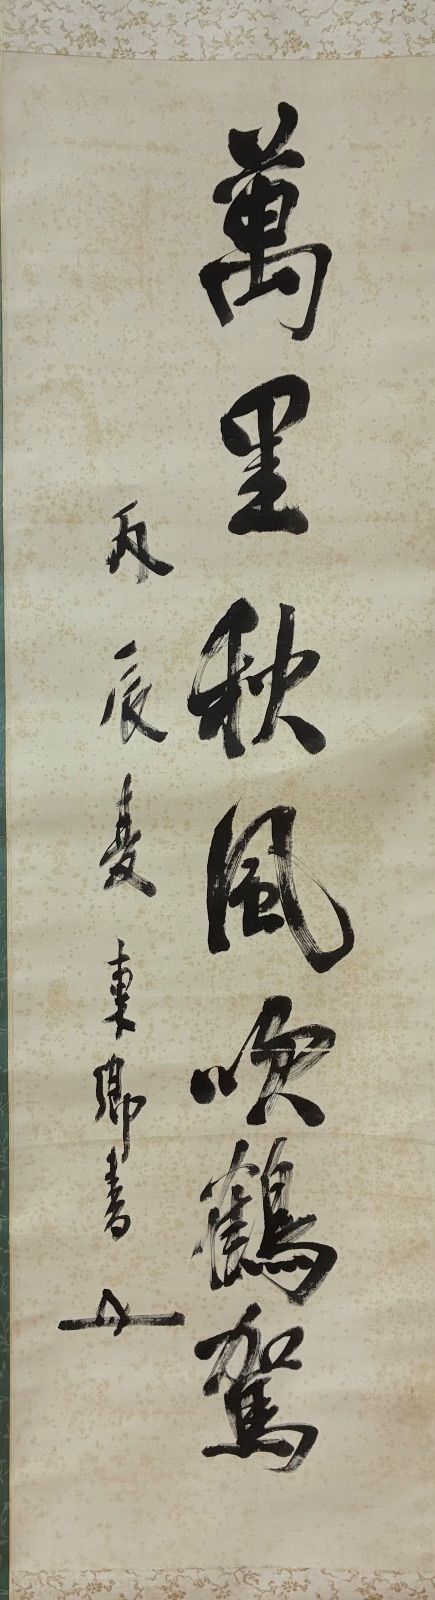 萬里秋風吹鶴駕
丙辰夏東卿書